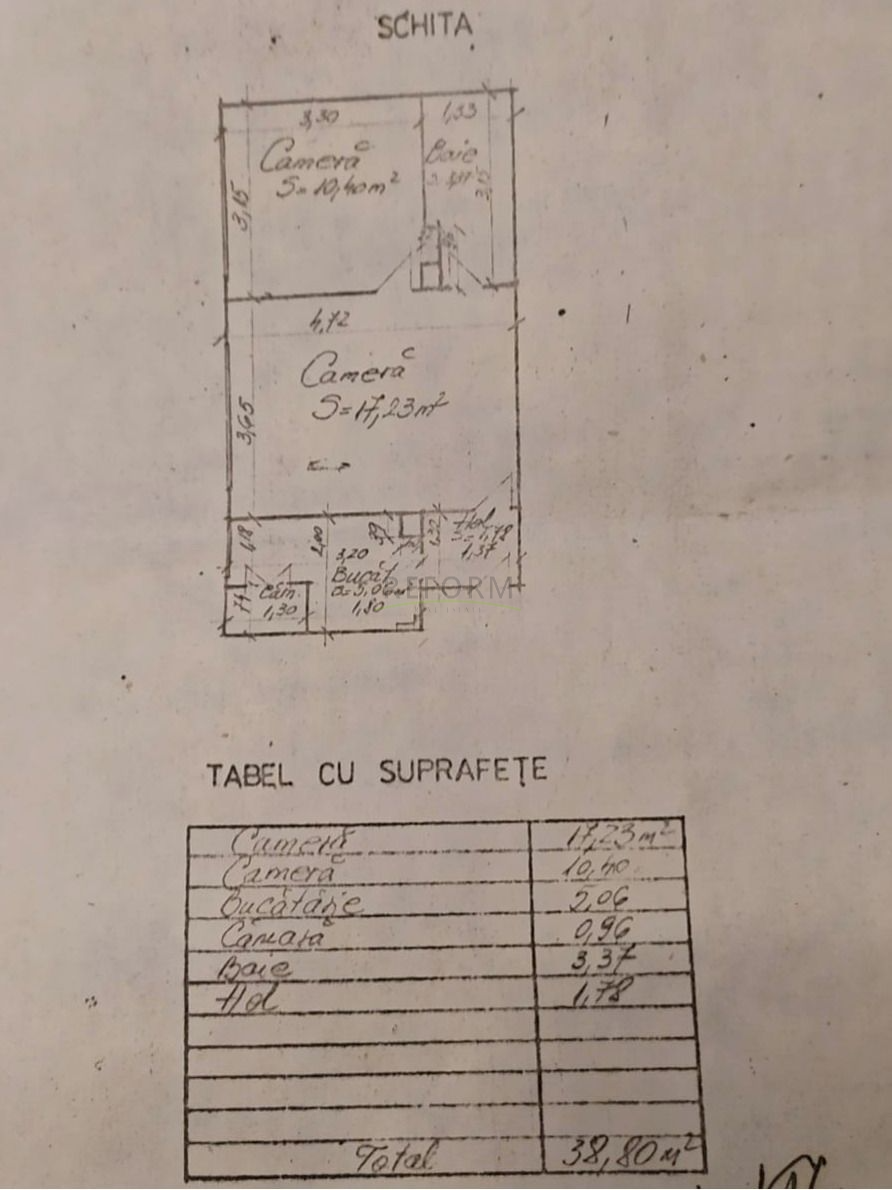 SCHITA
3,30
1,33
Cameră
S=10,40m²
Baie
3,15
4,72
Cameră
S=17,23m²
3,65
Hol
S=1,78
1,37
3,20
Bucăt.
S=5,06m²
1,80
Căm.
1,30
REFORM
TABEL CU SUPRAFEȚE
Cameră 17,23m²
Cameră 10,40
Bucătărie 5,06
Cămară 0,96
Baie 3,37
Hol 1,78
Total 38,80m²